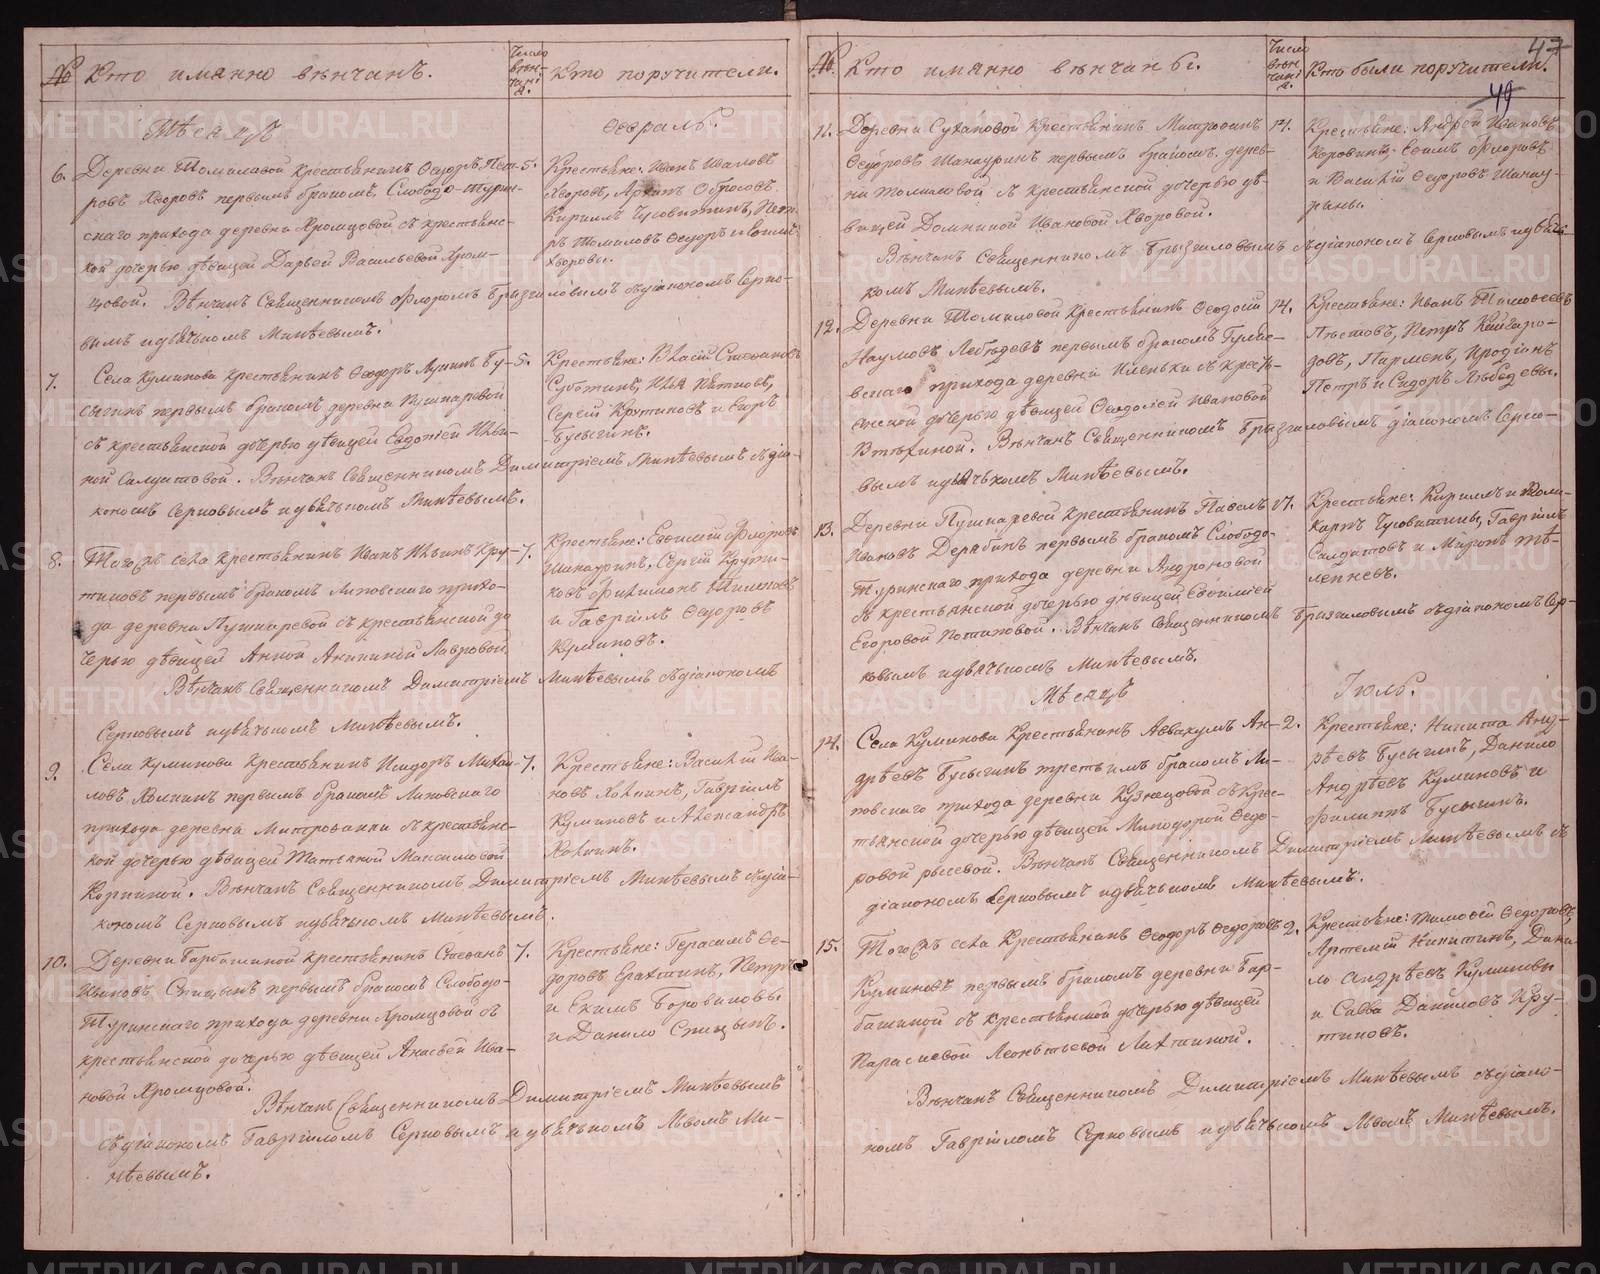 № Кто имянно вѣнчанъ. Число вѣнчанія. Кто поручители.
Мѣсяцъ Февраль.
6. Деревни Томиловой крестьянинъ Ѳедоръ Пет- 5.
ровъ Яворовъ первымъ бракомъ, Слободо-турин-
скаго прихода деревни Хромцовой съ крестьянс-
кой дочерью дѣвицей Дарьей Васильевой Хром-
цовой. Вѣнчанъ Священникомъ Флоромъ Брызгаловымъ съ діакономъ Серко-
вымъ и дьячкомъ Минѣевымъ.
Крестьяне: Иванъ Ивановъ
Яворовъ,
Кириллъ Чусовитинъ, Пет-
ръ Томиловъ Ѳедоръ
Яворовы.
7. Села Куминова крестьянинъ Ѳеодоръ Лукинъ Бу- 5.
сыгинъ первымъ бракомъ деревни Пушкаревой
съ крестьянской дочерью дѣвицей Евдокіей Ильи-
ной Салдатовой. Вѣнчанъ Священникомъ Димитріемъ Минѣевымъ съ діа-
кономъ Серковымъ и дьячкомъ Минѣевымъ.
Крестьяне: Власій Степановъ
Субботинъ, Илья
Сергій Крутиковъ и Егоръ
Бусыгинъ.
8. Тогожъ села крестьянинъ Иванъ Ильинъ Кру- 7.
тиковъ первымъ бракомъ Липовскаго прихо-
да деревни Пушкаревой съ крестьянской до
черью дѣвицей Анной Лавровой
Вѣнчанъ Священникомъ Димитріемъ Минѣевымъ съ діакономъ
Серковымъ и дьячкомъ Минѣевымъ.
Крестьяне: Евѳимій Флоровъ
Шанауринъ, Сергій Крути-
ковъ Филимонъ
и Гавріилъ Ѳедоровъ
Куминовъ.
9. Села Куминова крестьянинъ Исидоръ Михай- 7.
ловъ первымъ бракомъ Липовскаго
прихода деревни Митрофанки съ крестьянс-
кой дочерью дѣвицей Татьяной Максимовой
Коркиной. Вѣнчанъ Священникомъ Димитріемъ Минѣевымъ съ діа-
кономъ Серковымъ и дьячкомъ Минѣевымъ.
Крестьяне: Василій Ива-
новъ Гавріилъ
Куминовъ и Александръ
10. Деревни Барбашиной крестьянинъ Стефанъ 7.
Ивановъ Спицынъ первымъ бракомъ Слободо-
Туринскаго прихода деревни Хромцовой съ
крестьянской дочерью дѣвицей Ива-
новой Хромцовой.
Вѣнчанъ Священникомъ Димитріемъ Минѣевымъ
съ діакономъ Гавріиломъ Серковымъ и дьячкомъ Львомъ Ми-
нѣевымъ.
Крестьяне: Герасимъ Ѳе-
доровъ Петръ
и Екимъ Боровиковы
и Данило Спицынъ.
47
49
№. Кто имянно вѣнчаны. Число вѣнчанія. Кто были поручители.
11. Деревни Сухановой крестьянинъ Митрофанъ 14.
Ѳедоровъ Шанауринъ первымъ бракомъ дерев-
ни Томиловой съ крестьянской дочерью дѣ-
вицей Домникой Ивановой Яворовой.
Вѣнчанъ Священникомъ Брызгаловымъ съ діакономъ Серковымъ и дьяч-
комъ Минѣевымъ.
Крестьяне: Андрей Ивановъ
Коровинъ, Флоровъ
и Василій Ѳедоровъ Шанау-
рины.
12. Деревни Томиловой крестьянинъ Ѳеодосій 14.
Наумовъ Лебѣдевъ первымъ бракомъ
прихода деревни Ильенки съ кресть-
янской дочерью дѣвицей Ѳеодосіей Ивановой
Втехиной. Вѣнчанъ Священникомъ Брызгаловымъ діакономъ Серко-
вымъ и дьячкомъ Минѣевымъ.
Крестьяне: Иванъ Тимофеевъ
Пѣстовъ, Петръ Кайгаро-
довъ, Парменъ, Иродіонъ
Петръ и Сидоръ Лѣбедевы.
13. Деревни Пушкаревой крестьянинъ Павелъ 17.
Ивановъ Дерябинъ первымъ бракомъ Слободо-
Туринскаго прихода деревни Андроновой
съ крестьянской дочерью дѣвицей Евѳиміей
Егоровой Потаповой. Вѣнчанъ Священникомъ Брызгаловымъ съ діакономъ Сер-
ковымъ и дьячкомъ Минѣевымъ.
Крестьяне: Кириллъ и Поли-
карпъ Чусовитины, Гавріилъ
Салдатовъ и Миронъ Тѣ-
лепневъ.
Мѣсяцъ Іюль.
14. Села Куминова крестьянинъ Аввакумъ Ан- 2.
дрѣевъ Бусыгинъ третьимъ бракомъ Ли-
повскаго прихода деревни Кузнецовой съ крес-
тьянской дочерью дѣвицей Минодорой Ѳедо-
ровой рысевой. Вѣнчанъ Священникомъ Димитріемъ Минѣевымъ съ
діакономъ Серковымъ и дьячкомъ Минѣевымъ.
Крестьяне: Никита Анд-
рѣевъ Бусыгинъ, Данило
Андрѣевъ Куминовъ и
Филиппъ Бусыгинъ.
15. Тогожъ села крестьянинъ Ѳеодоръ Ѳедоровъ 2.
Куминовъ первымъ бракомъ деревни Бар-
башиной съ крестьянской дочерью дѣвицей
Параскевой Леонтьевой Лахтиной.
Вѣнчанъ Священникомъ Димитріемъ Минѣевымъ съ діако-
номъ Гавріиломъ Серковымъ и дьячкомъ Львомъ Минѣевымъ.
Крестьяне: Тимофей Ѳедоровъ,
Артемій Никитинъ, Дани-
ло Андрѣевъ Куминовы
и Савва Даниловъ Кру-
тиковъ.
METRIKI.GASO-URAL.RU